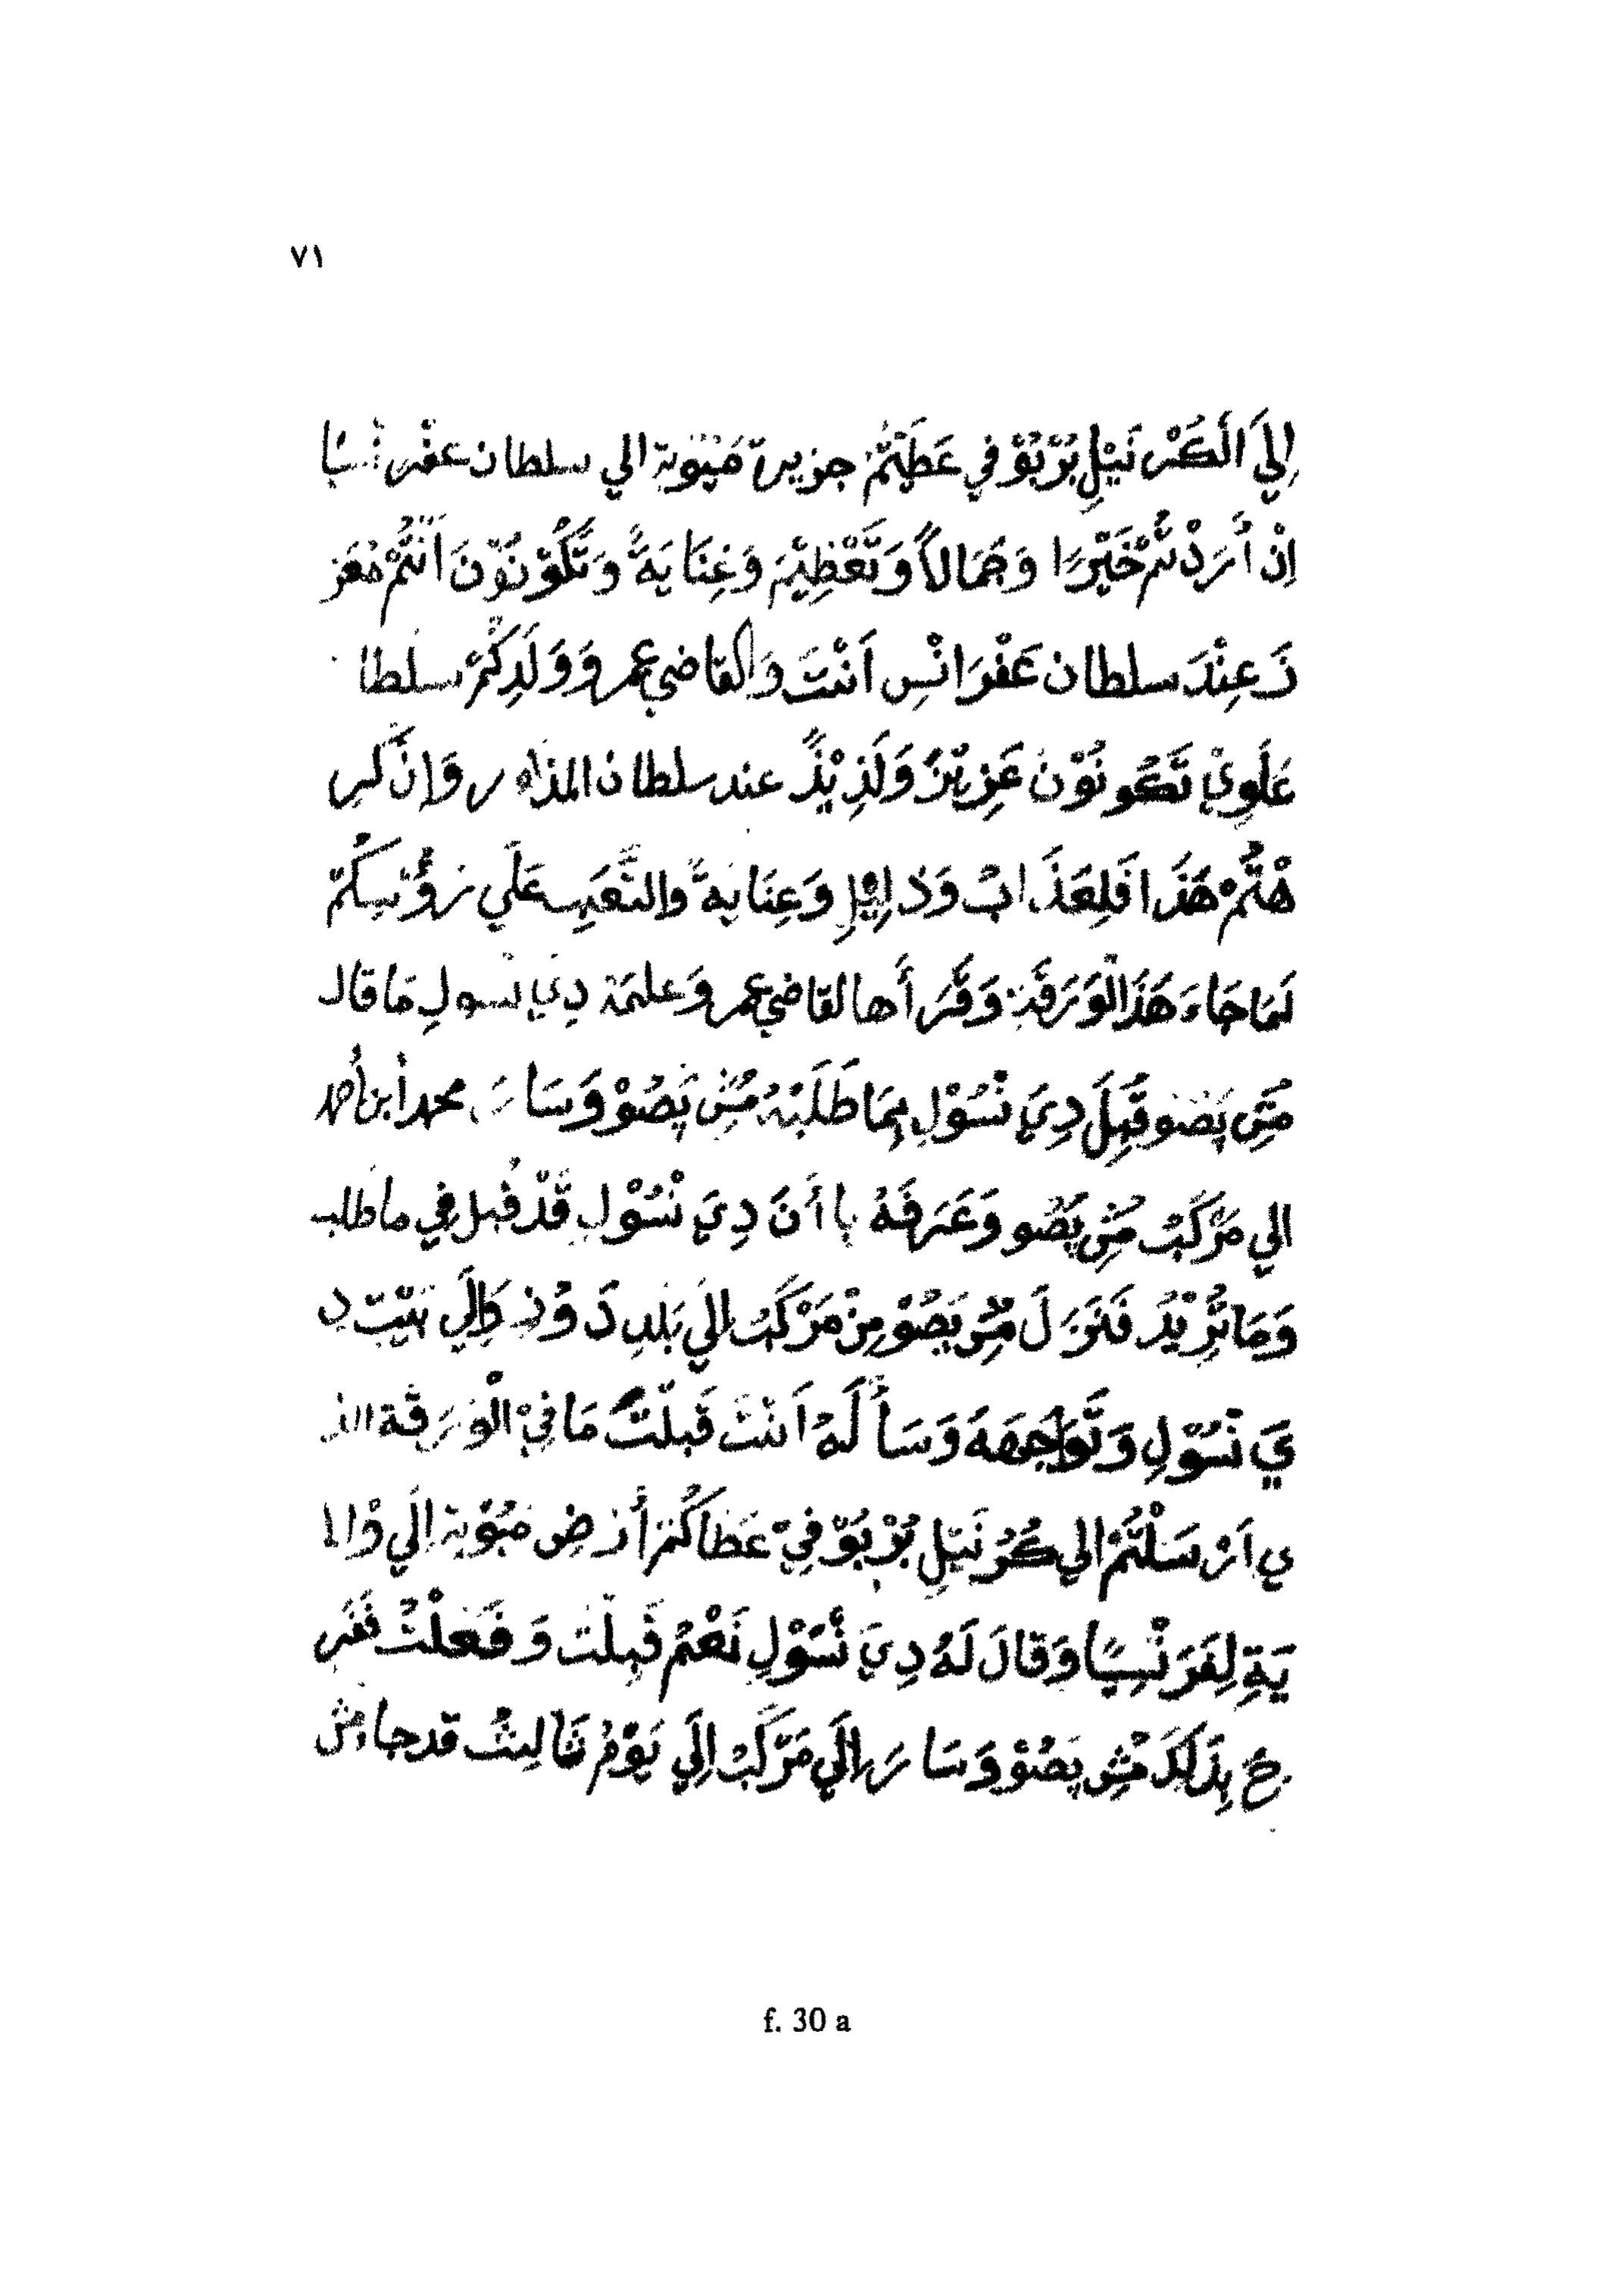 ٧١
إِلَيَ الَكَرْنَيْلِ بُرْبُوْ في عَطِيَتُمْ جزيرة مَيُوتة الي سلطان عفرنسيا
اِنْ أُرَدْتُمْ خَيْرًا وَجَمَالاً وَتَعْظِيْمَ وَعِنَايَةً وَتَكُوْنُوْنَ اَنْتُمْ مُعَز
زَ عِنْدَ سلطان عَفْرَانْسِ اَنْتَ وَالقاضي عمر وَوَلَدِكُمْ سلطا
عَلَوِيْ تَكُونُوْنَ عَزِيْزٌ وَلَذِيْذً عند سلطان المذاور وَاِنْ كر
هْتُمْ هَذَا فَلِعَذَابْ وَذلِيْلِ وَعِنَايةً والتَّعَبِ عَلَي رُؤُسِكُمْ
لَمَا جَاءَ هَذَا الْوَرَقَة وَقَرَأَها القاضي عمر وَعلمَهُ دِيَ نسولِ مَا قال
مَشِ پَصُو قَبِلَ دِيَ نْسُوْلِ بِمَا طَلَبَهُ مُشِ پَصُوْ وَسَارَ محمد أبن أحمد
الي مَرْكَبْ مُشِ پَصُو وَعَرَفَهُ بِاأَنَ دِيَ نْسُوْلِ قَدْ قبل في ما طلب
وَمَا يُرِيْدُ فَنَزَلَ مُشِ پَصُوْ مِنْ مَرْكَبْ اِلَي بَلَدِ دَوُنِ وَاِلَي بَيْت دِ
يَ نْسُوْلِ وَتَوَاجَهَهَ وَسَأَلَهُ اَنْتَ قَبِلْتَ مَا فِيْ الْوَرَقَة الذ
ي اَرْسَلْتُمْ الي كُرُنَيْلِ بُرْبُوْ فِيْ عَطَاكُمْ أَرْضِ مَيُوْتة اِلَي دْوَالا
يَةِ لِفَرَنْسِيًا وَقَالَ لَهُ دِيَ نْسُوْلِ نَعْمْ قَبِلْت وَفَعَلْتُ فَفَر
حَ بِذَلَكَ مُشِ پَصُوْ وَسَارَ اِلَي مَرْكَبْ اِلَي يَوْمُ ثَالِثْ قد جا مش
f. 30 a